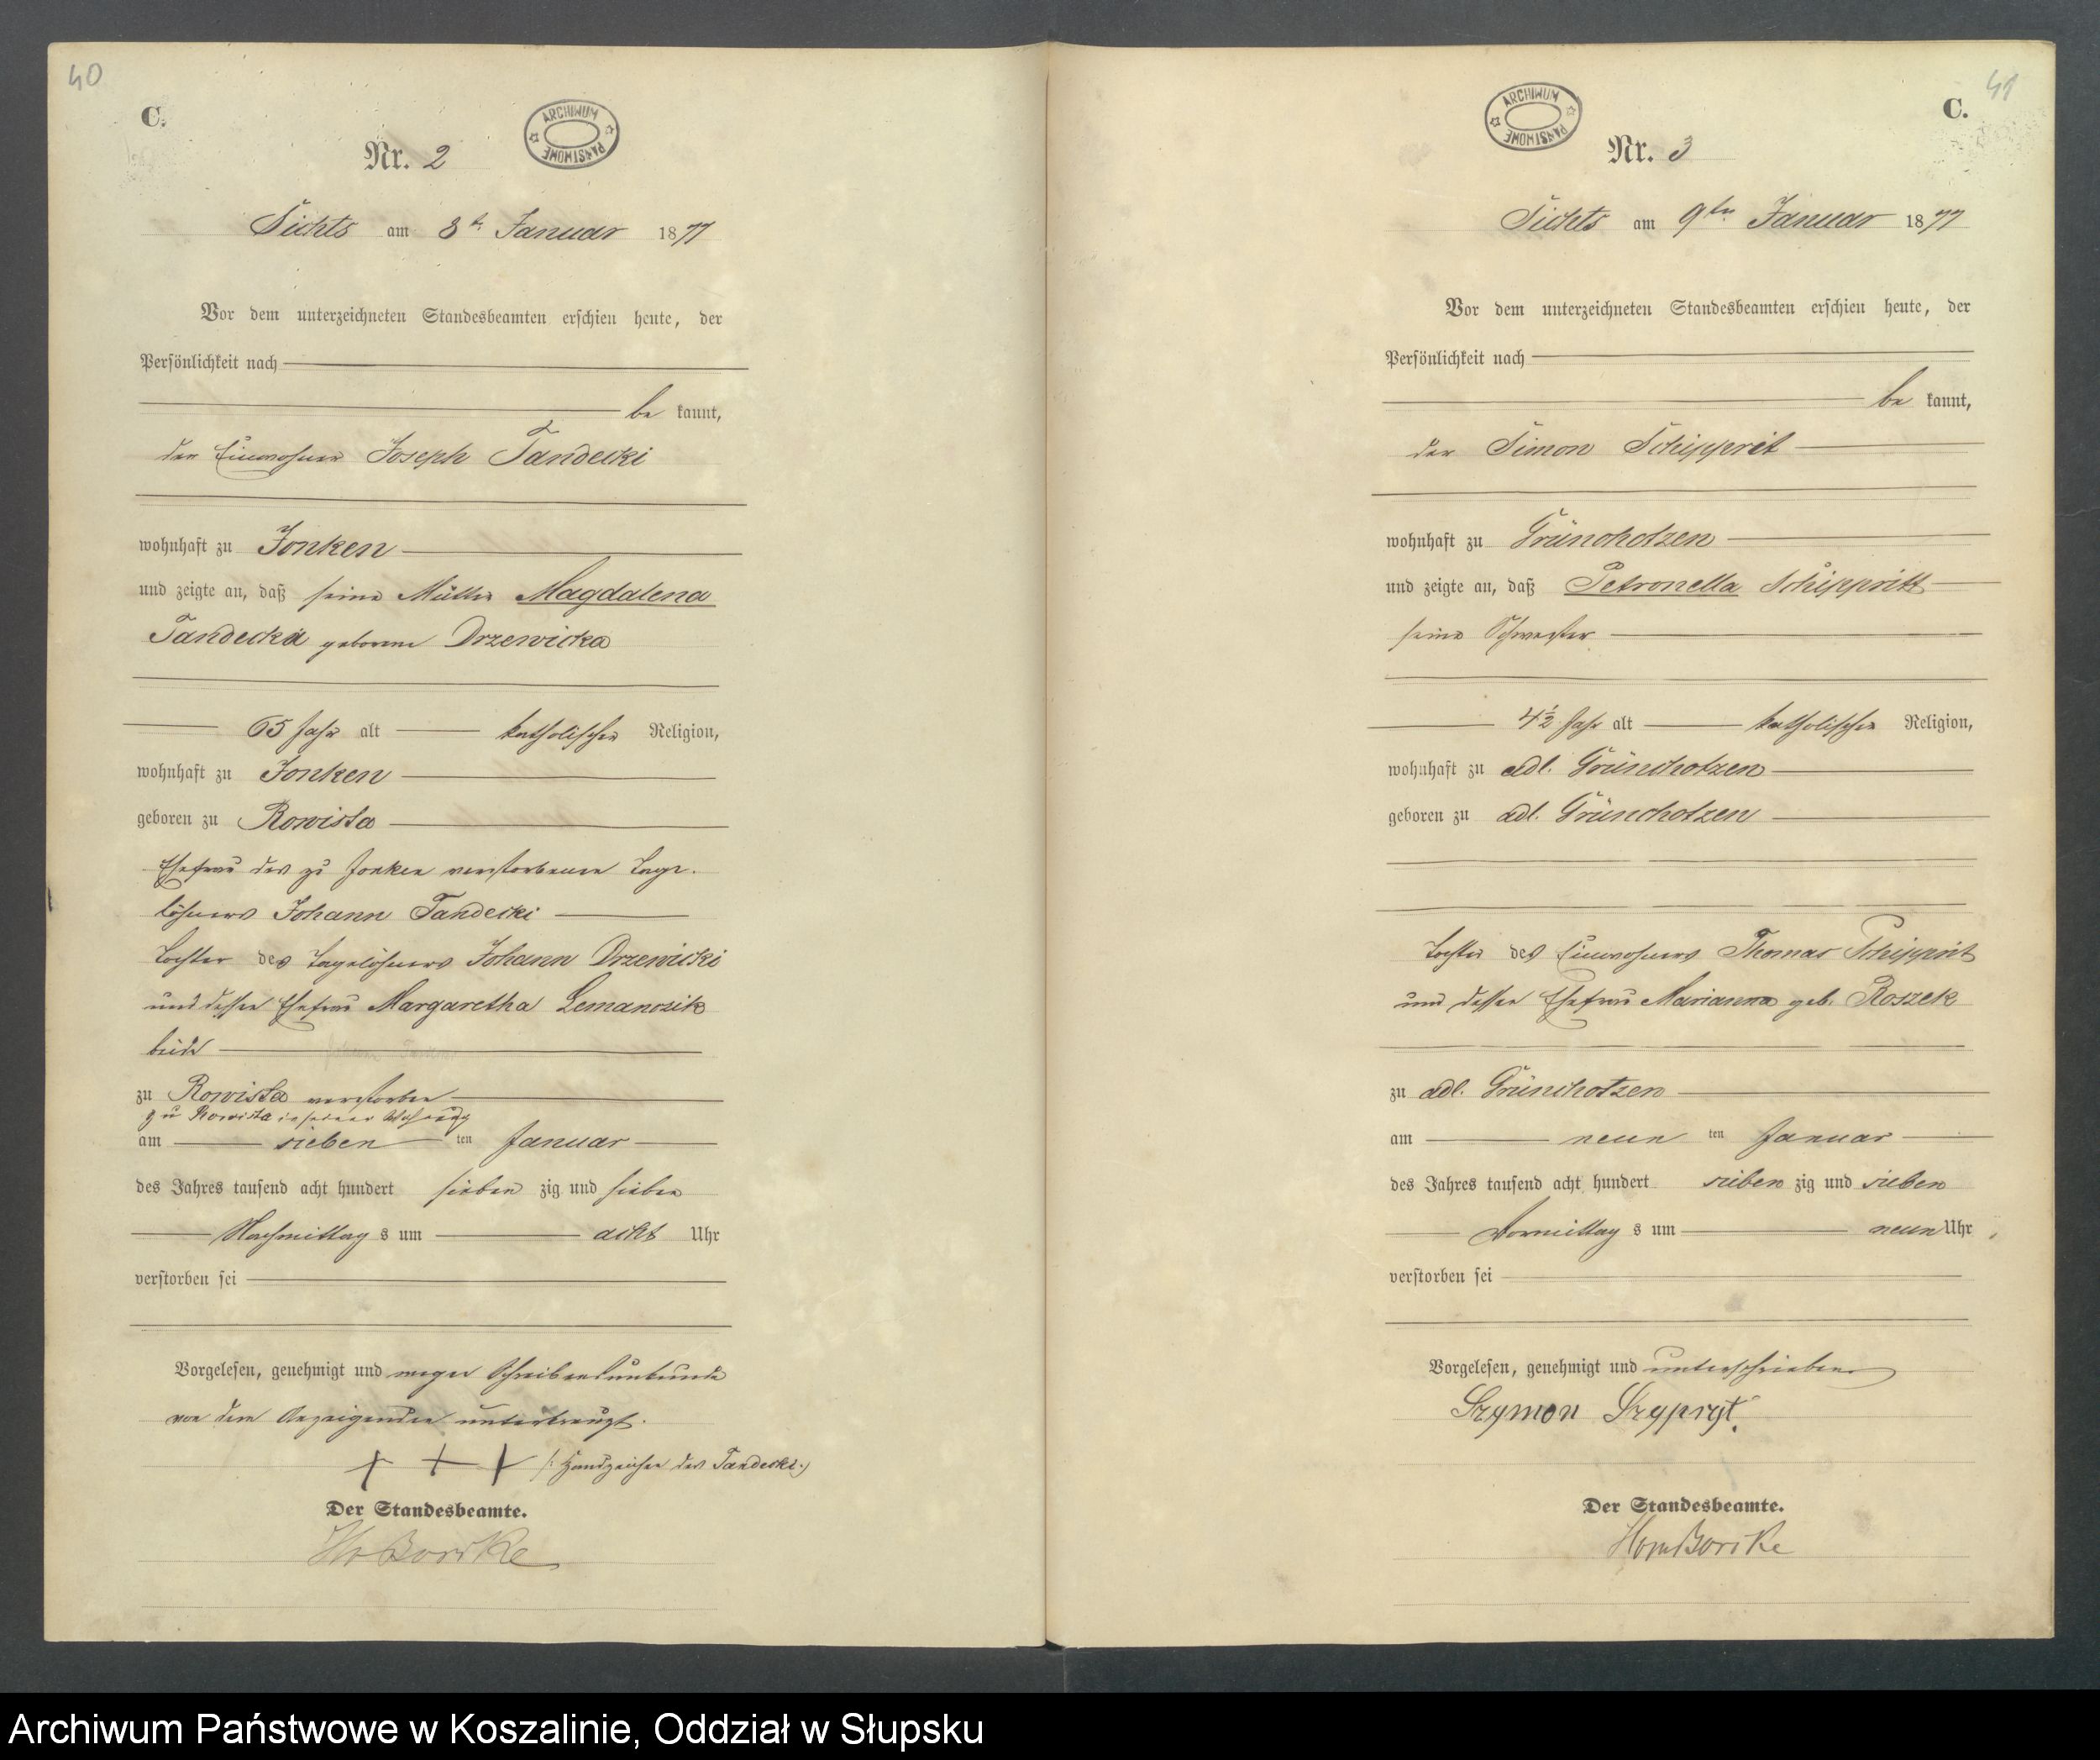 40
C.
ARCHIWUM PAŃSTWOWE
Nr. 2
Sichts am 8t Januar 1877
Vor dem unterzeichneten Standesbeamten erschien heute, der
Persönlichkeit nach
be kannt,
der Einwohner Joseph Tandecki
wohnhaft zu Jonken
und zeigte an, daß seine Mutter Magdalena
Tandecka geborene Drzewicka
65 Jahr alt katholischer Religion,
wohnhaft zu Jonken
geboren zu Rowista
Ehefrau des zu Jonken verstorbenen Tage-
löhners Johann Tandecki
Tochter des Tagelöhners Johann Drzewicki
und dessen Ehefrau Margaretha Lemanozik
beide
zu Rowista verstorben
zu Rowista in seiner Wohnung
am sieben ten Januar
des Jahres tausend acht hundert sieben zig und sieben
Nachmittag s um acht Uhr
verstorben sei
Vorgelesen, genehmigt und wegen Schreibensunkunde
von dem Anzeigenden unterkreuzt.
+ + + /: Handzeichen des Tandecki :/
Der Standesbeamte.
41
C.
ARCHIWUM PAŃSTWOWE
Nr. 3
Sichts am 9ten Januar 1877
Vor dem unterzeichneten Standesbeamten erschien heute, der
Persönlichkeit nach
be kannt,
der Simon Schipprit
wohnhaft zu Grünchotzen
und zeigte an, daß Petronella Schippritt
seine Schwester
4½ Jahr alt katholischer Religion,
wohnhaft zu adl. Grünchotzen
geboren zu adl. Grünchotzen
Tochter des Einwohners Thomas Schipprit
und dessen Ehefrau Marianna geb. Roszek
zu adl. Grünchotzen
am neun ten Januar
des Jahres tausend acht hundert sieben zig und sieben
Vormittag s um neun Uhr
verstorben sei
Vorgelesen, genehmigt und unterschrieben
Szymon Szypryt
Der Standesbeamte.
Archiwum Państwowe w Koszalinie, Oddział w Słupsku